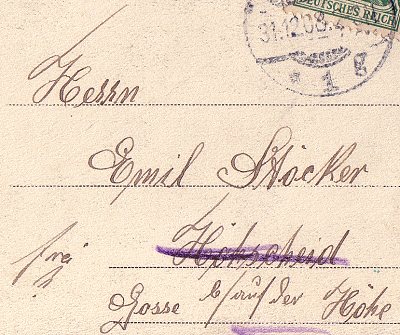 DEUTSCHES REICH
31.12.08.4
1 g
Herrn
Emil Stöcker
Höhscheid
frei
Gosse b/auf der Höhe